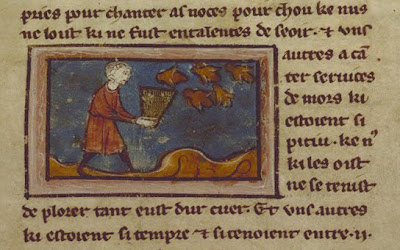 pues pour chanter as noces pour chou ke nus
ne lout ki ne fust entalentes de seoir. ⁊ vns
autres a cā
ter seruices
de mors ki
estoient si
pitiu. ke nˀ
ki les oist
ne se tenist
de plorer tant eust dur cuer. Et vns autres
ki estoient si tempre ⁊ si tenoient entre .ii.